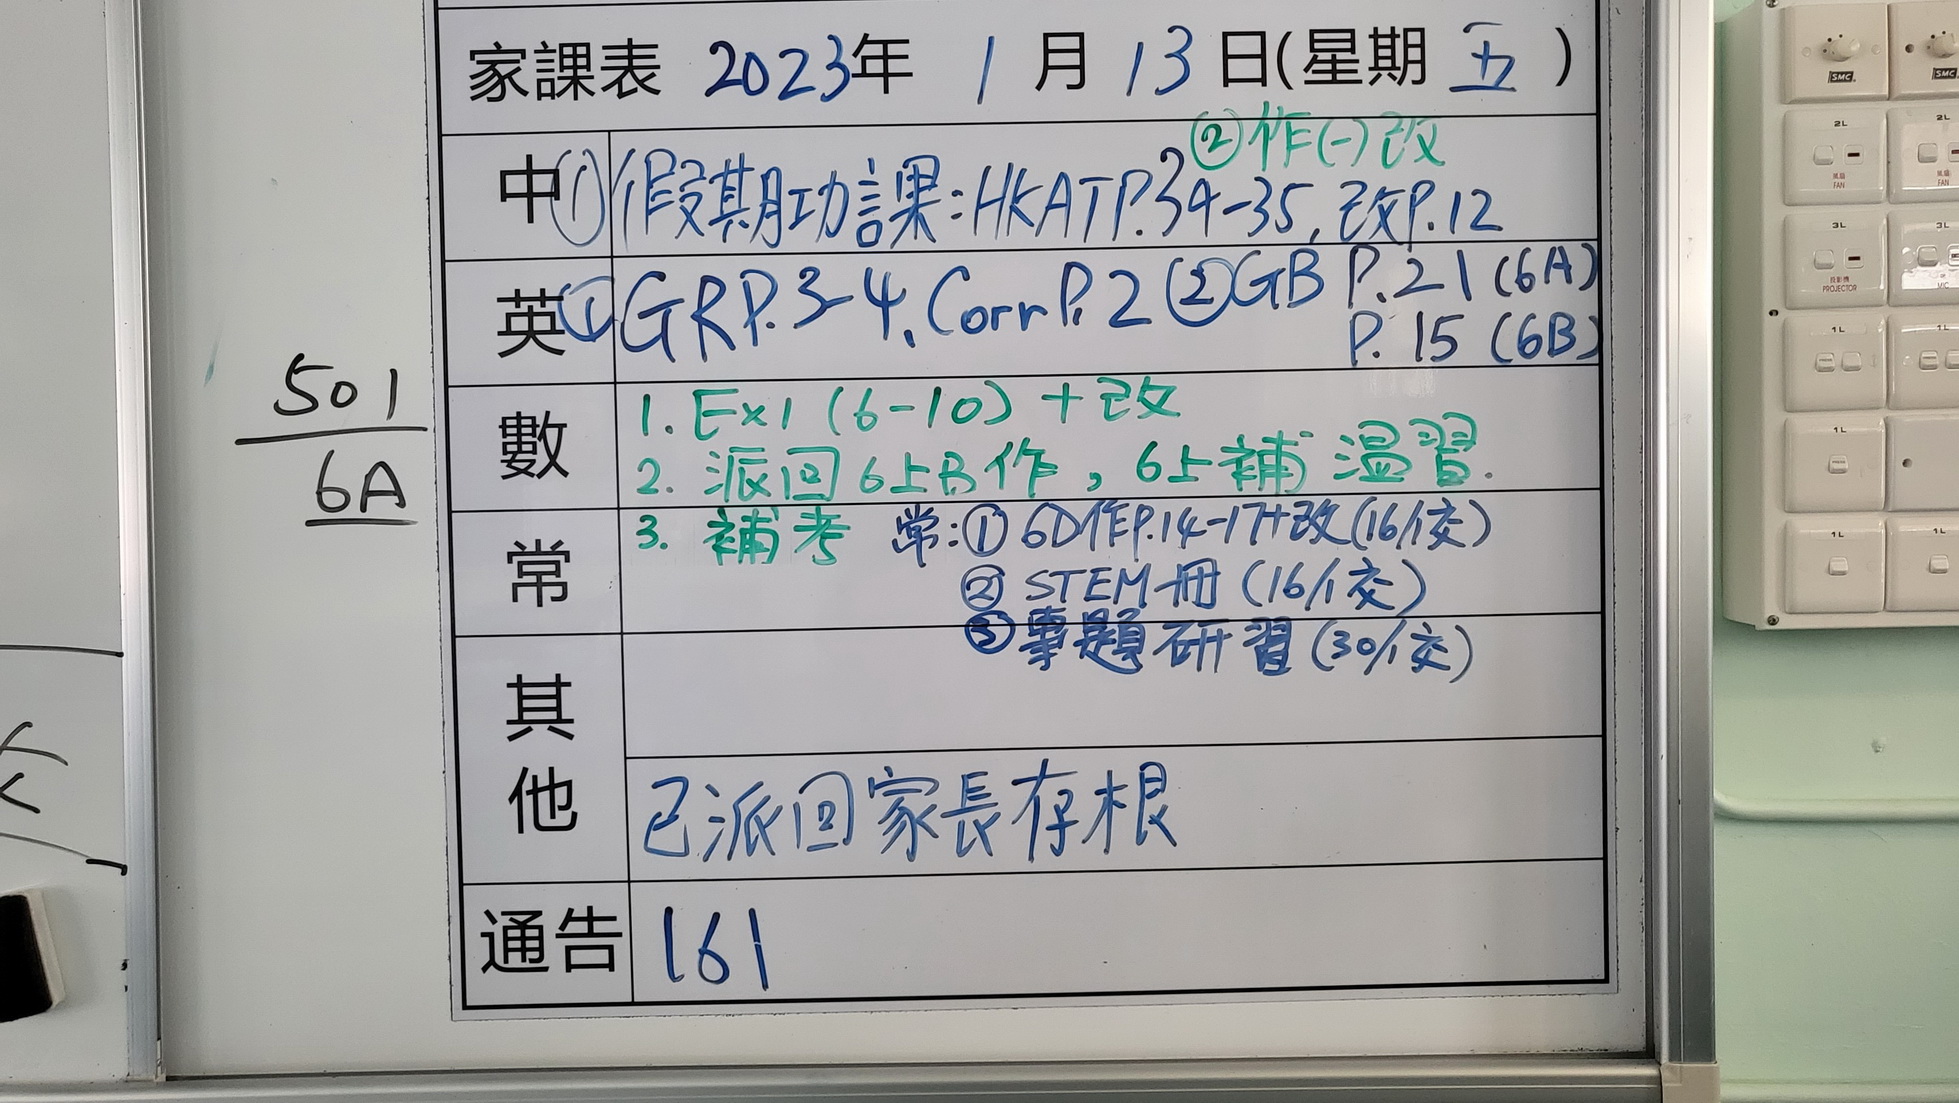 家課表 2023年 1月13日(星期五)
②作(一)改
中 ①假期功課:HKAT P.34-35,改P.12
英 ①GR P.3-4,Corr P.2 ②GB P.21(6A)
P.15(6B)
501
6A
數 1. Ex1(6-10)+改
2. 派回6上B作,6上補温習.
3. 補考
常 常:① 6D作P.14-17+改(16/1交)
② STEM冊(16/1交)
③專題研習(30/1交)
其他
已派回家長存根
通告 161
SMC
SMC
2L
2L
風扇
FAN
風扇
FAN
3L
3L
投影機
PROJECTOR
MIC
1L
1L
1L
1L
1L